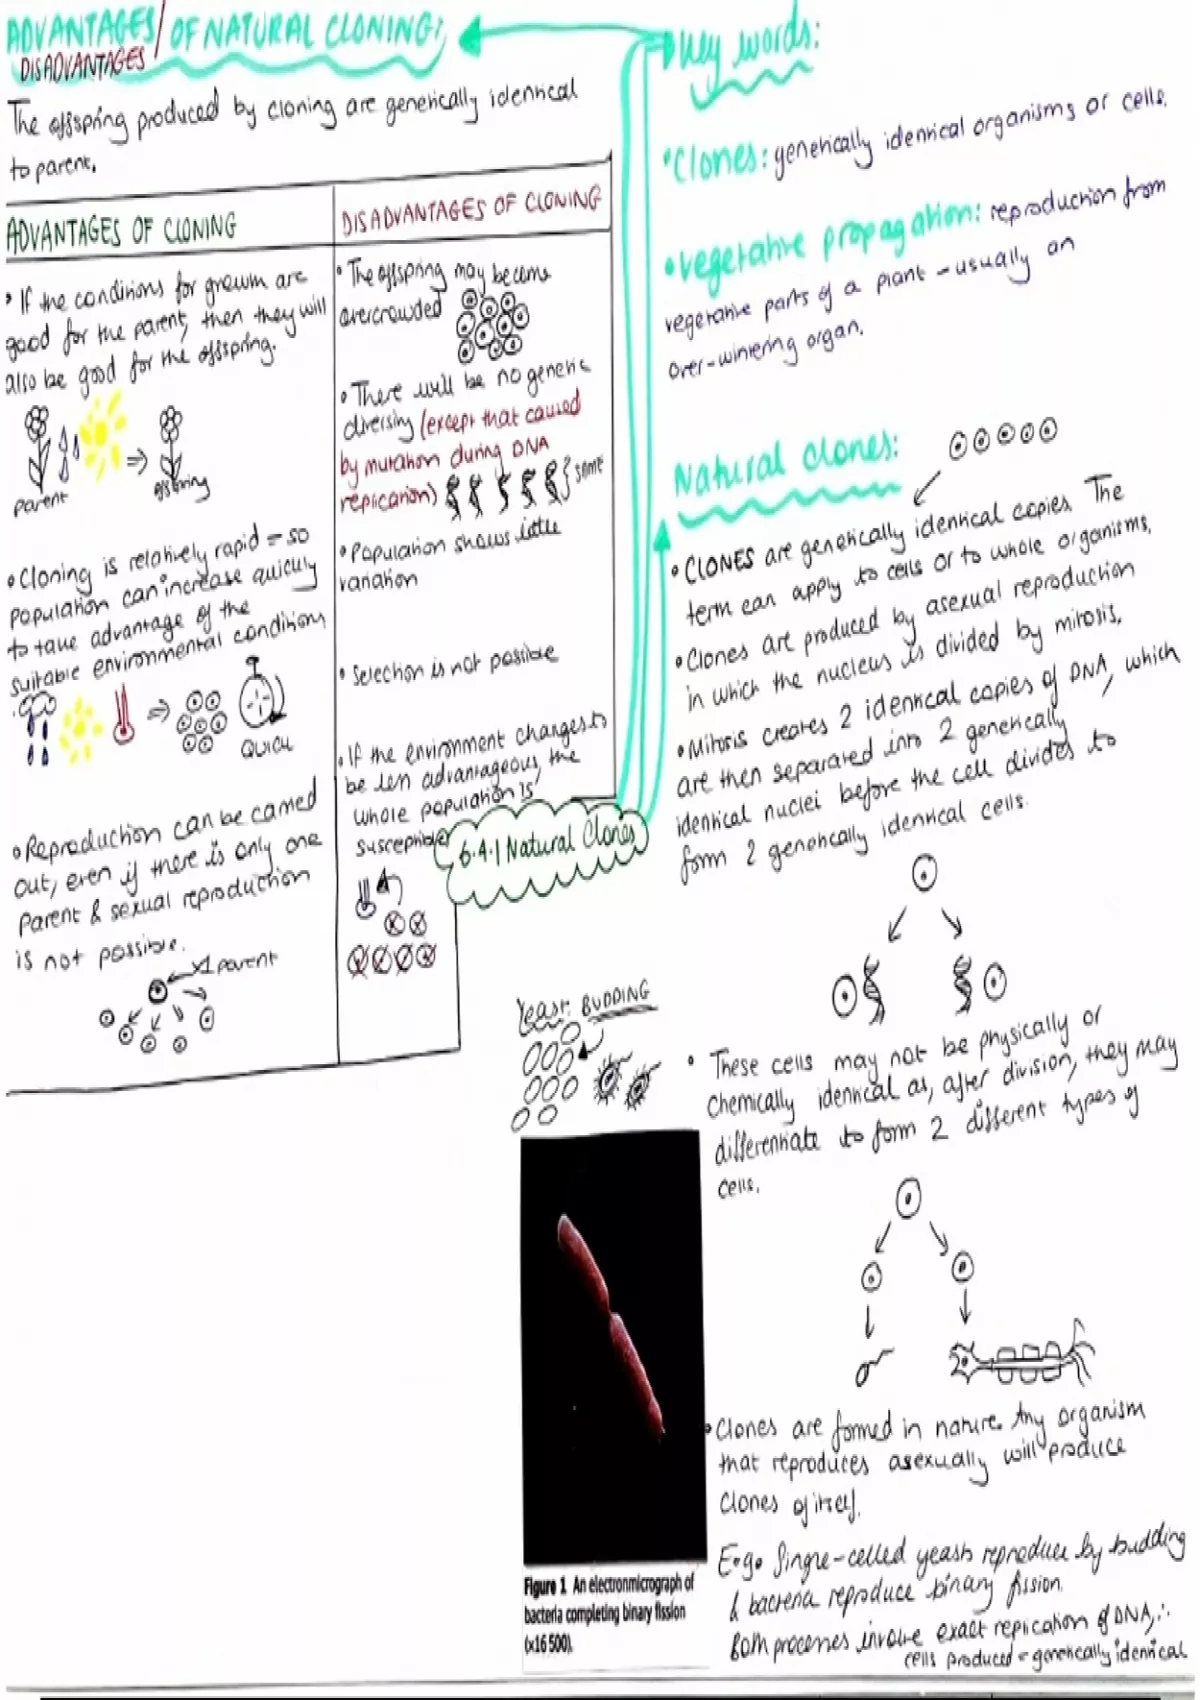 ADVANTAGES/ OF NATURAL CLONING:
DISADVANTAGES
The offspring produced by cloning are genetically identical
to parent.
ADVANTAGES OF CLONING
• If the conditions for growth are
good for the parent, then they will
also be good for the offspring.
parent
offspring
• Cloning is relatively rapid = so
population can increase quickly
to take advantage of the
suitable environmental conditions
QUICK
• Reproduction can be carried
out, even if there is only one
parent & sexual reproduction
is not possible.
x1 parent
DISADVANTAGES OF CLONING
• The offspring may become
overcrowded
• There will be no genetic
diversity (except that caused
by mutation during DNA
replication)
same
• Population shows little
variation
• Selection is not possible
• If the environment changes to
be less advantageous, the
whole population is
susceptible
6.4.1 Natural Clones
Key words:
• Clones: genetically identical organisms or cells.
• Vegetative propagation: reproduction from
vegetative parts of a plant - usually an
over-wintering organ.
Natural clones:
• CLONES are genetically identical copies. The
term can apply to cells or to whole organisms.
• Clones are produced by asexual reproduction
in which the nucleus is divided by mitosis.
• Mitosis creates 2 identical copies of DNA, which
are then separated into 2 genetically
identical nuclei before the cell divides to
form 2 genetically identical cells.
• These cells may not be physically or
chemically identical as, after division, they may
differentiate to form 2 different types of
cells.
• Clones are formed in nature. Any organism
that reproduces asexually will produce
clones of itself.
E.g. Single-celled yeasts reproduce by budding
& bacteria reproduce binary fission.
Both processes involve exact replication of DNA, ∴
cells produced = genetically identical
Yeast: BUDDING
Figure 1 An electronmicrograph of
bacteria completing binary fission
(×16 500).